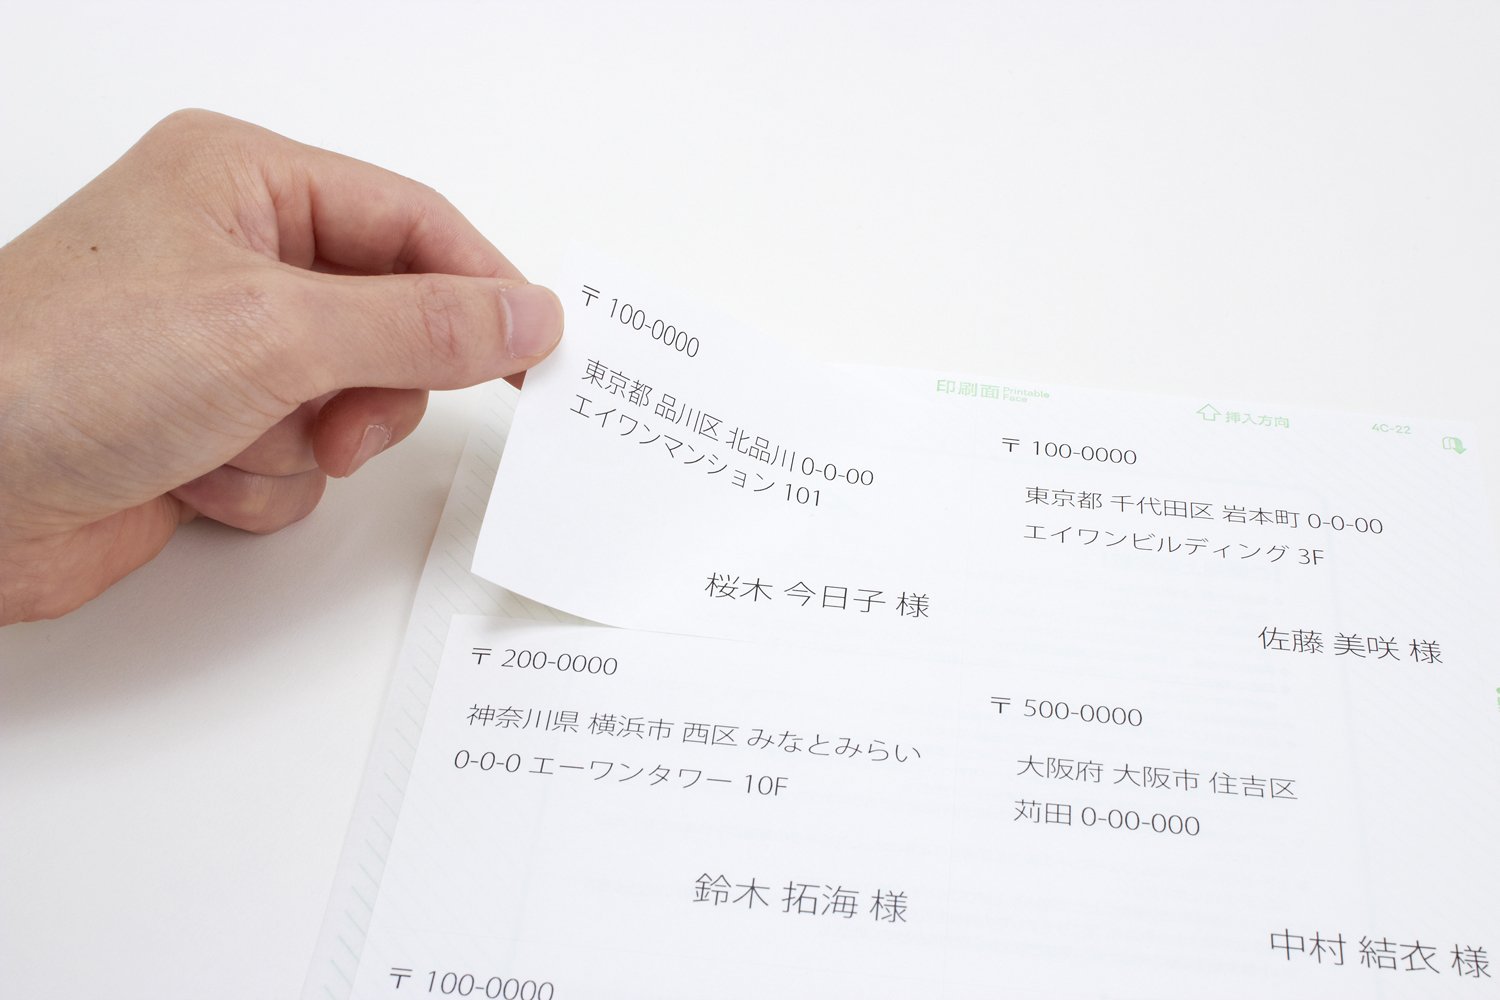 印刷面 Printable Face
挿入方向
4C-22
〒 100-0000
東京都 品川区 北品川 0-0-00
エイワンマンション 101
桜木 今日子 様
〒 100-0000
東京都 千代田区 岩本町 0-0-00
エイワンビルディング 3F
佐藤 美咲 様
〒 200-0000
神奈川県 横浜市 西区 みなとみらい
0-0-0 エーワンタワー 10F
鈴木 拓海 様
〒 500-0000
大阪府 大阪市 住吉区
苅田 0-00-000
中村 結衣 様
〒 100-0000